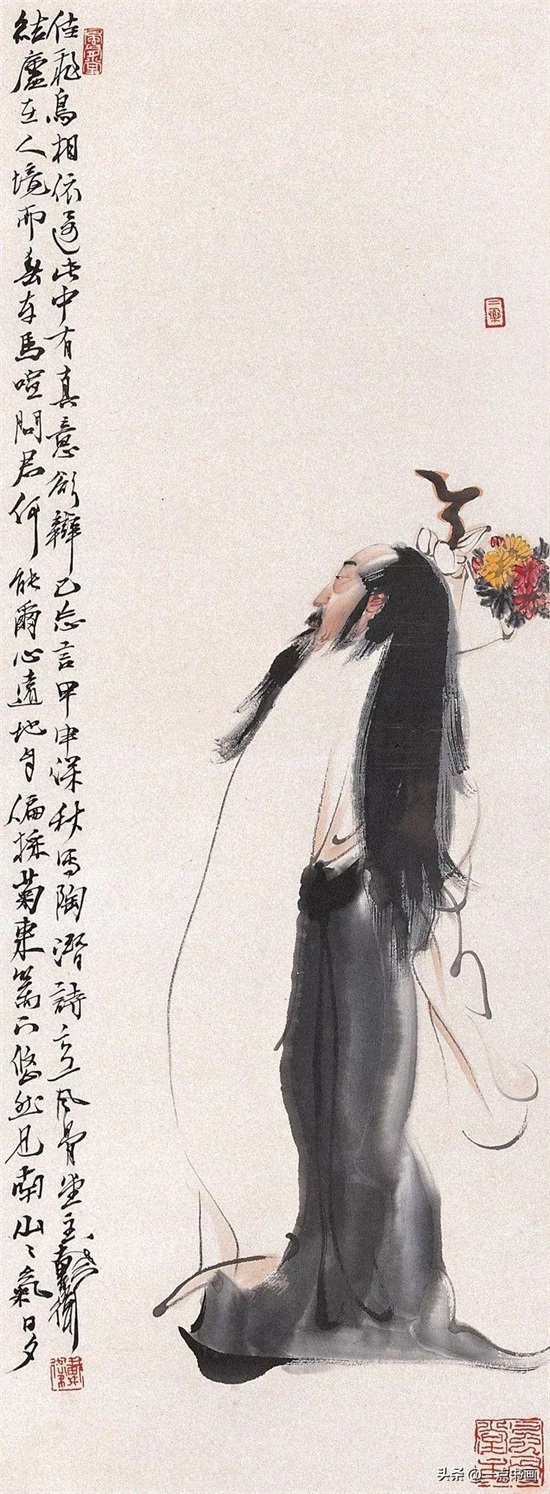 結廬在人境而無車馬喧問君何能爾心遠地自偏採菊東籬下悠然見南山々氣日夕
佳飛鳥相依還此中有真意欲辯已忘言甲申深秋寫陶潛詩意風骨堂主
三樂
头条 @三点书画